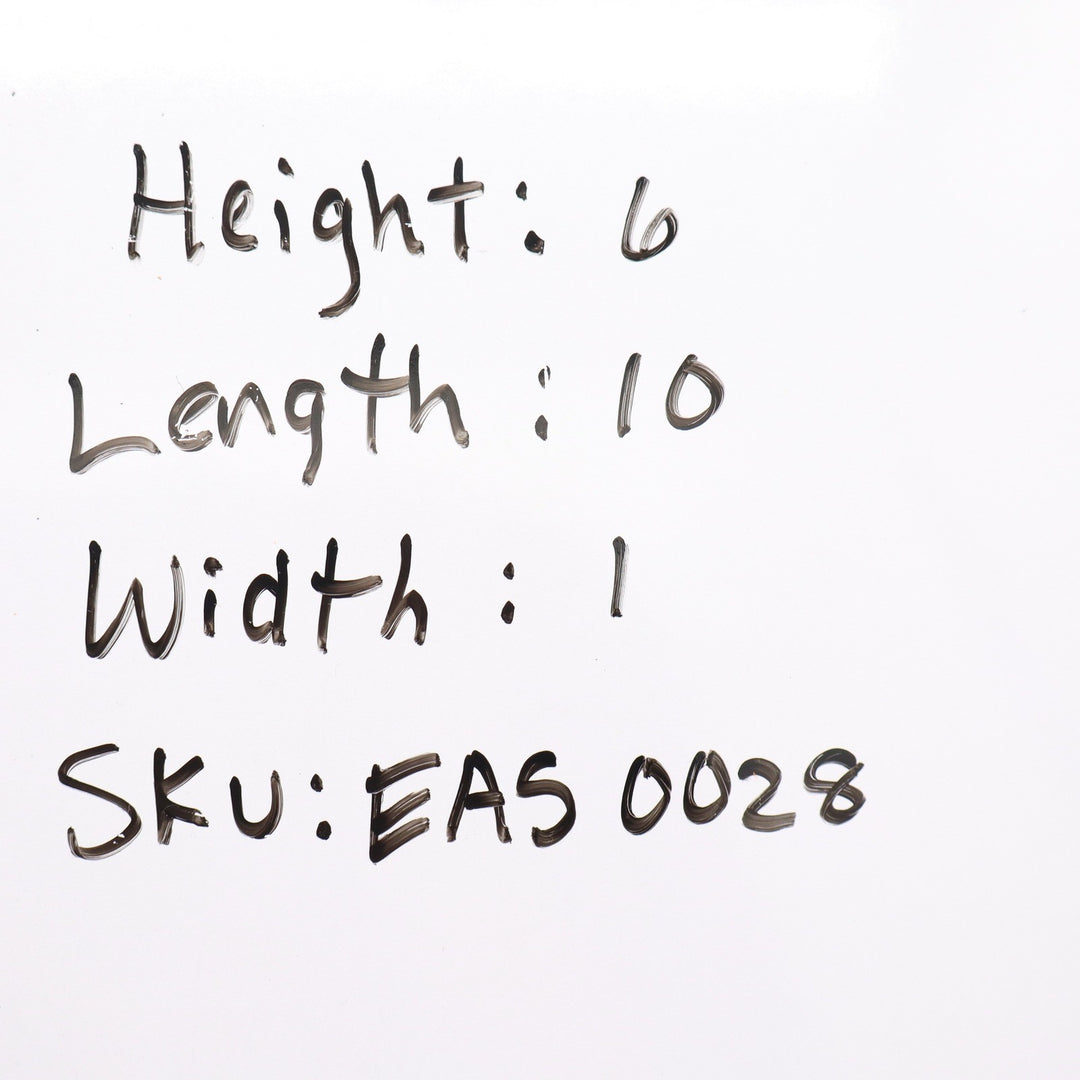 Height: 6
Length: 10
Width: 1
SKU: EAS 0028